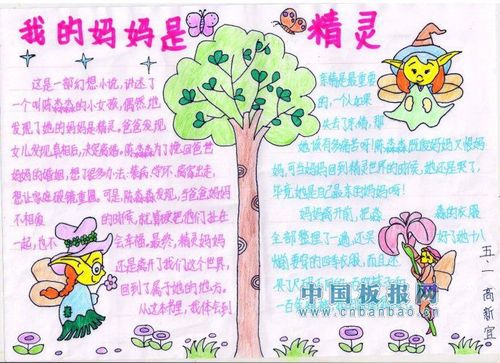 我的妈妈是精灵
这是一部幻想小说,讲述了
一个叫陈淼淼的小女孩,偶然地
发现了她的妈妈是精灵,爸爸发现
女儿发现真相后,决定离婚。陈淼淼为了挽回爸爸
妈妈的婚姻,想了很多办法:装病、学坏、离家出走,
想让家庭破镜重圆。可是,陈淼淼发现,与爸爸妈妈
不相爱 的时候,就算硬把他们拉在
一起,也不 会幸福。最终,精灵妈妈
还是离开了我们这个世界,
回到了属于她的地方。
从这本书里,我体会到
亲情是最重要
的,一个人如果
失去了亲情,那
她该有多痛苦啊!陈淼淼既怕妈妈又恨妈
妈,可当妈妈回到精灵世界的时候,她还是哭了,
毕竟她是自己最亲的妈妈啊!
妈妈离开前,把淼 淼的衣服
全部整理了一遍,还买 好了她十八
四季衣服,而且还
中国板报网
www.cnbanbao.cn
五.一 高新宫